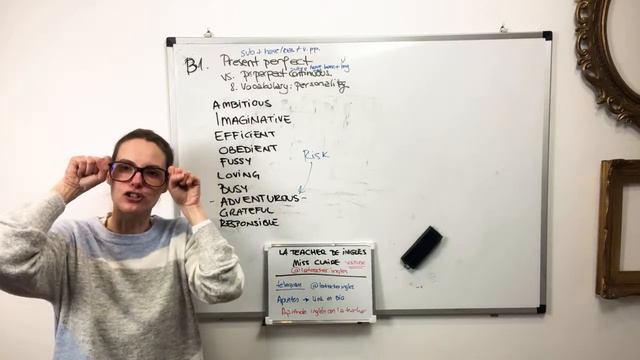 sub + have/has + v. pp.
B1. Present perfect
vs. pr perfect continuous
& vocabulary: personality
AMBITIOUS
IMAGINATIVE
EFFICIENT
OBEDIENT
FUSSY
Risk
LOVING
BUSY
- ADVENTUROUS -
GRATEFUL
RESPONSIBLE
LA TEACHER DE INGLES
MISS CLAIRE YOUTUBE
@lateacher.ingles
telegram @lateacheringles
Apuntes → Link en bio
Aprende inglés con la teacher